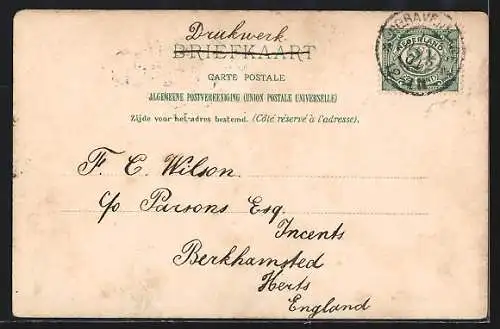 Drukwerk
BRIEFKAART
CARTE POSTALE
ALGEMEENE POSTVEREENIGING (UNION POSTALE UNIVERSELLE)
Zijde voor het adres bestemd. (Côté réservé à l'adresse).
NEDERLAND
F. C. Wilson.
c/o Parsons Esq.
Incents
Berkhamsted
Herts
England